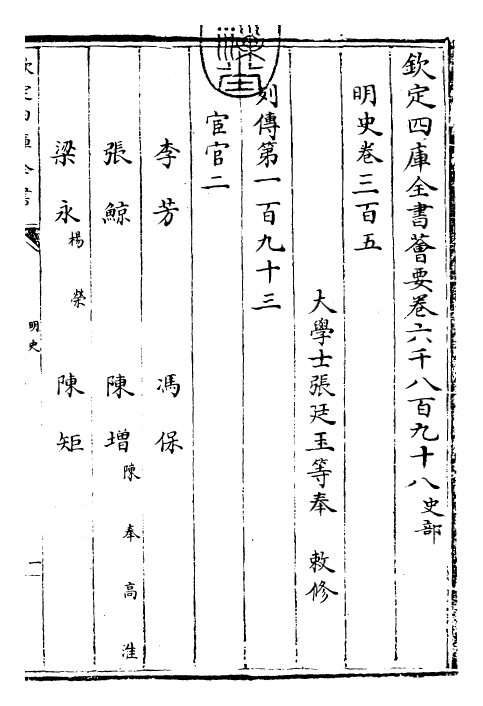 欽定四庫全書薈要卷六千八百九十八史部
明史卷三百五
大學士張廷玉等奉 敕修
列傳第一百九十三
宦官二
李芳 馮保
張鯨 陳增陳奉 高淮
梁永楊榮 陳矩
欽定四庫全書
明史
一